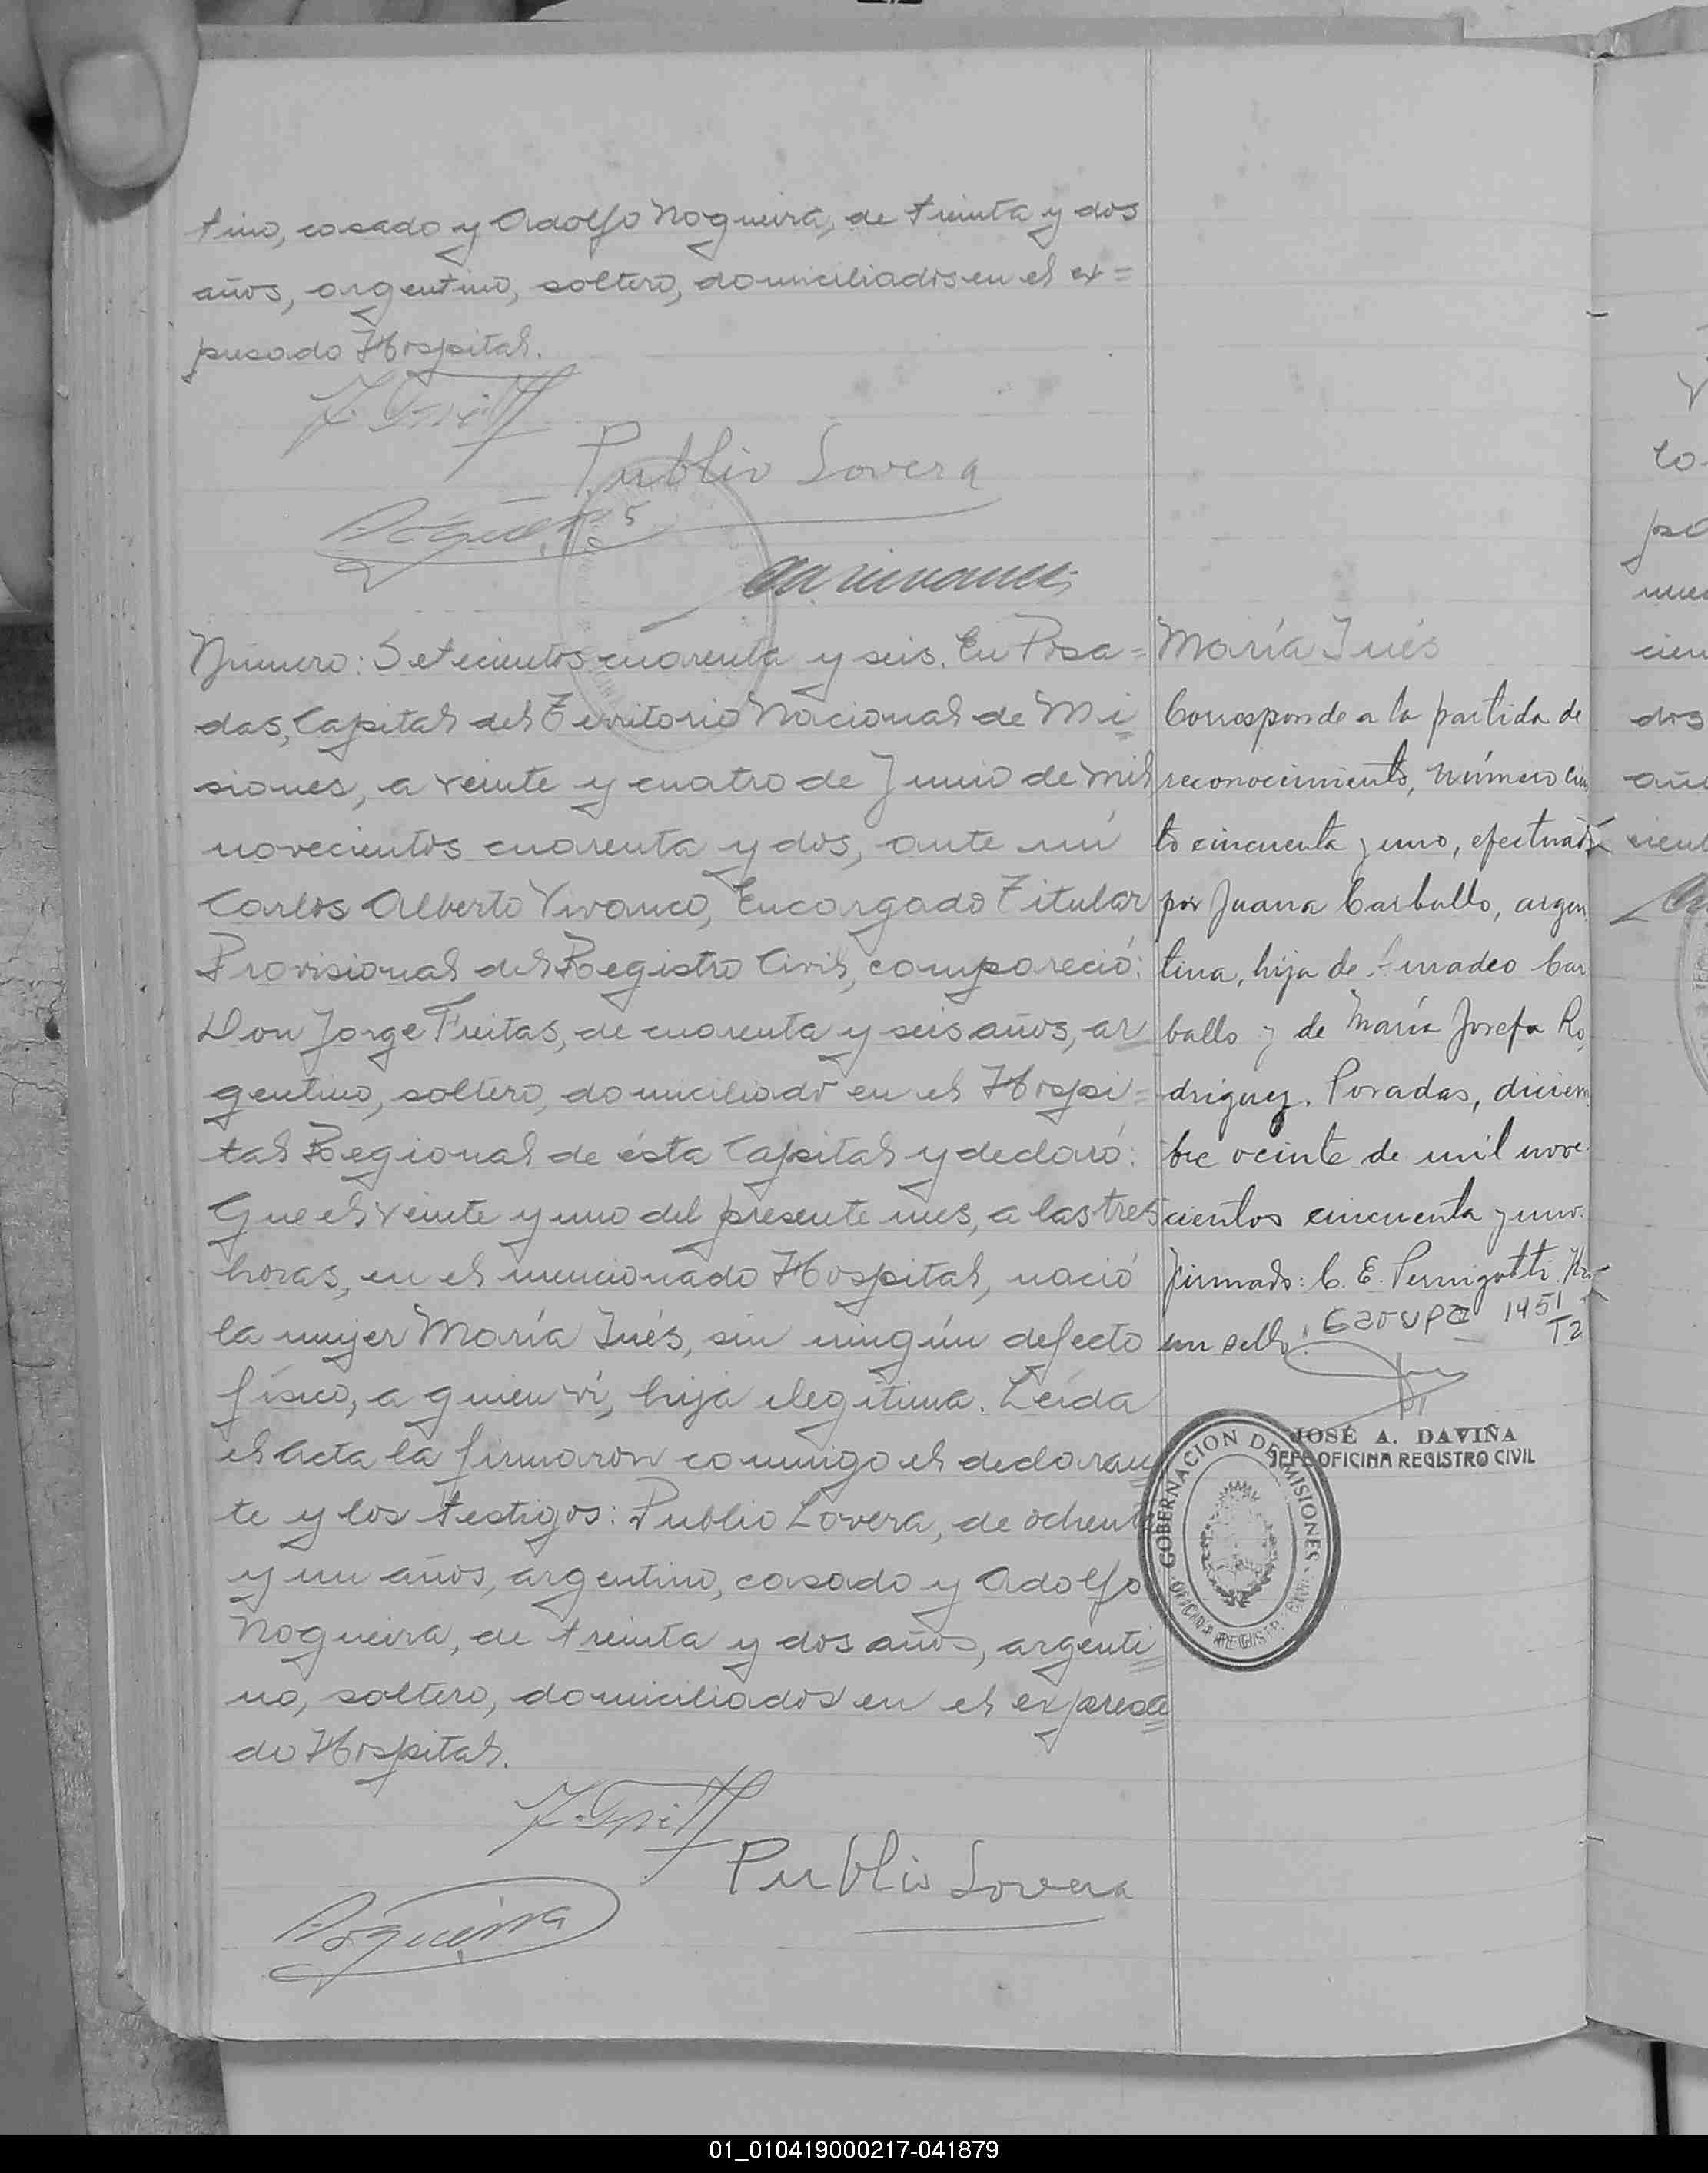 tino, casado y Adolfo Nogueira, de treinta y dos
años, argentino, soltero, domiciliados en el ex=
presado Hospital.
Publio Lovera
Número: Setecientos cuarenta y seis. En Posa=
das, Capital del Territorio Nacional de Mi
siones, a veinte y cuatro de Junio de mil
novecientos cuarenta y dos, ante mí
Carlos Alberto Vivanco, Encargado Titular
Provisional del Registro Civil, compareció:
Don Jorge Freitas, de cuarenta y seis años, ar
gentino, soltero, domiciliado en el Hospi=
tal Regional de ésta Capital y declaró:
Que el veinte y uno del presente mes, a las tres
horas, en el mencionado Hospital, nació
la mujer María Inés, sin ningún defecto
físico, a quien ví, hija ilegítima. Leída
el Acta la firmaron conmigo el declaran
te y los testigos: Publio Lovera, de ochenta
y un años, argentino, casado y Adolfo
Nogueira, de treinta y dos años, argenti
no, soltero, domiciliados en el expresa
do Hospital.
Publio Lovera
Nogueira
María Inés
Corresponde a la partida de
reconocimiento, número cien
to cincuenta y uno, efectuada
por Juana Carballo, argen
tina, hija de Amadeo Car
ballo y de María Josefa Ro
driguez. Posadas, diciem
bre veinte de mil nove
cientos cincuenta y uno.
Firmado: C. E. Pernigotti. Hay
un sello. Garupa 1951
T2
JOSÉ A. DAVIÑA
JEFE OFICINA REGISTRO CIVIL
GOBERNACION DE MISIONES
OFICINA REGISTRO CIVIL
01_010419000217-041879